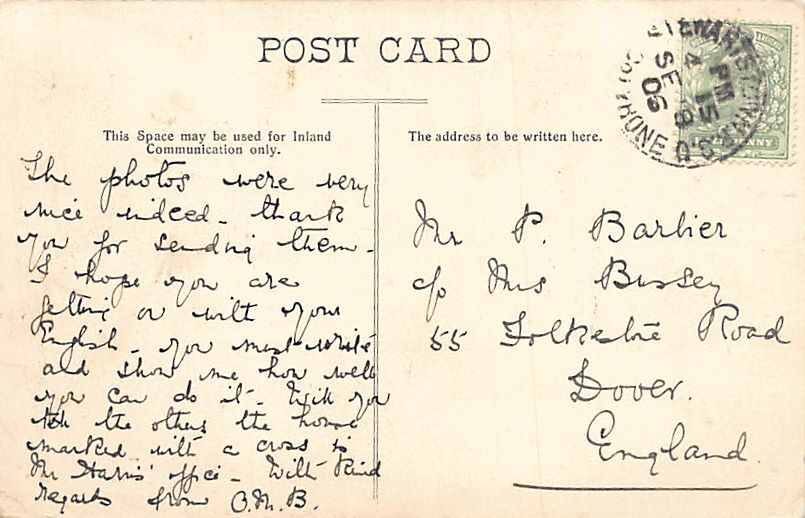 POST CARD
This Space may be used for Inland
Communication only.
The address to be written here.
The photos were very
nice indeed - thank
you for sending them -
I hope you are
getting on with your
English - you must write
and show me how well
you can do it - Will you
tell the others the house
marked with a cross is
Mr Harris' office - With kind
regards from O.M.B.
Mr P. Barbier
c/o Mrs Bussey
55 Folkestone Road
Dover.
England
4 15 PM
SE 9
06